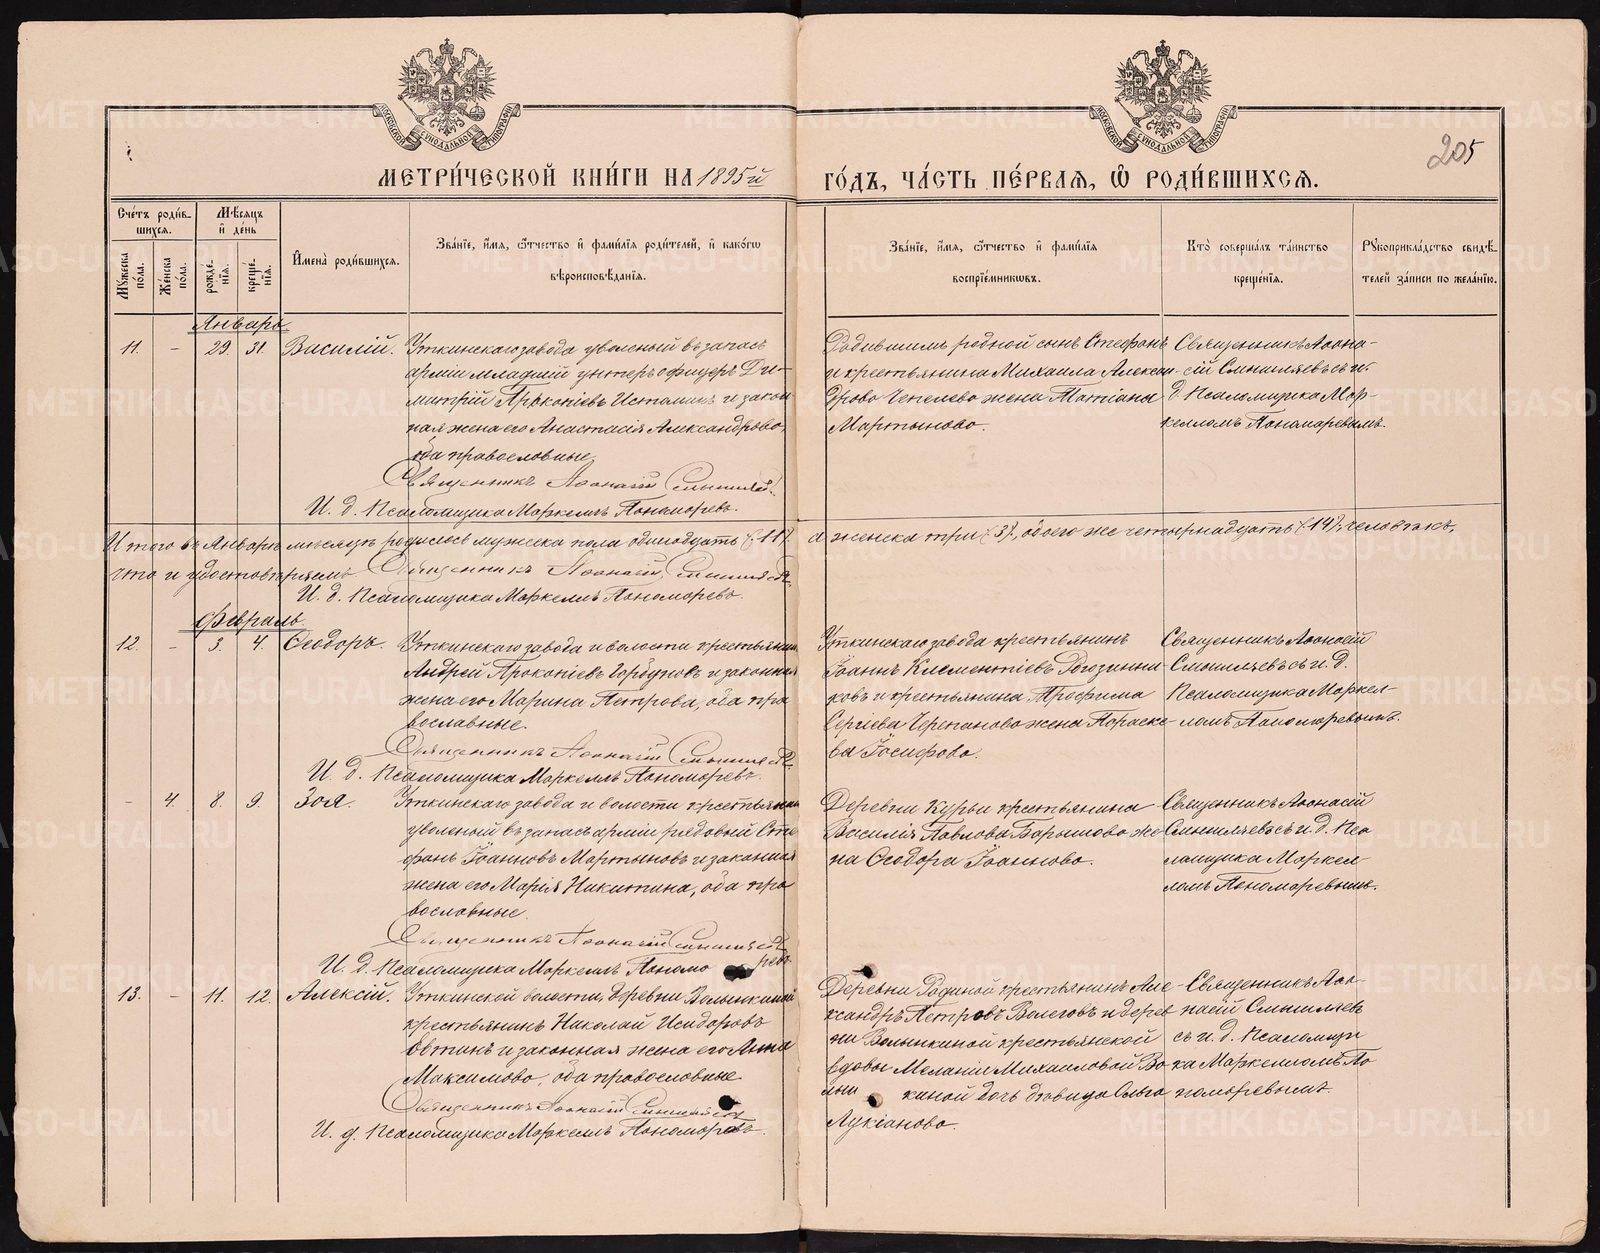 МОСКОВСКОЙ СѴНОДАЛЬНОЙ ТИПОГРАФІИ
МОСКОВСКОЙ СѴНОДАЛЬНОЙ ТИПОГРАФІИ
205
МЕТРИ́ЧЕСКОЙ КНИ́ГИ НА 1895й
ГО́ДЪ, ЧА́СТЬ ПЕ́РВАЯ, Ѡ РОДИ́ВШИХСЯ.
Сче́тъ роди́в-
шихся.
Мѣ́сяцъ
и҆ де́нь
Мꙋ́жеска по́ла.
Же́нска по́ла.
рожде́-нїѧ.
креще́-нїѧ.
И҆мена̀ роди́вшихся.
Зва́нїе, и҆́мя, ѻ҆́тчество и҆ фами́лїя роди́телей, и҆ како́гѡ
вѣроисповѣ́данїя.
Зва́нїе, и҆́мя, ѻ҆́тчество и҆ фами́лїя
воспрїе́мникѡвъ.
Кто̀ соверша́лъ та́инство
креще́нїя.
Рꙋкоприкла́дство свидѣ́-
телей за́писи по жела́нїю.
Январь.
11. - 29. 31. Василій.
Уткинскаго завода уволеный въ запасъ
арміи младшій унтеръ офицеръ Ди-
митрій Прокопіевъ Истоминъ и закон
ная жена его Анастасія Александрова,
оба православные.
Священникъ Аѳанасій Смышляев
И. д. Псаломщика Маркеллъ Пономаревъ.
Родившимъ родной сынъ Стефанъ
и крестьянина Михаила Алексан-
дрова Чепелева жена Татіана
Мартынова.
Священникъ Аѳана-
сій Смышляевъ съ и.
д. Псаломщика Мар-
келломъ Пономаревымъ.
Итого въ Январѣ мѣсяцѣ родилось мужеска пола одинадцать (11) а женска три (3), обоего же четырнадцать (14), человѣкъ,
что и удостовѣряемъ Священникъ Аѳанасій Смышляевъ
И. д. Псаломщика Маркеллъ Пономаревъ.
Февраль
12. - 3. 4. Ѳеодоръ.
Уткинскаго завода и волости крестьянинъ
Андрей Прокопіевъ Горбуновъ и законная
жена его Марина Петрова, оба пра
вославные.
Священникъ Аѳанасій Смышляевъ
И. д. Псаломщика Маркеллъ Пономаревъ.
Уткинскаго завода крестьянинъ
Іоаннъ Климентіевъ Рогезинни
ковъ и крестьянина Трофима
Сергіева Черепанова жена Параске-
ва Іосифова.
Священникъ Аѳанасій
Смышляевъ съ и. д.
Псаломщика Маркел-
ломъ Пономаревымъ.
- 4. 8. 9. Зоя.
Уткинскаго завода и волости крестьянинъ
уволеный въ запасъ арміи рядовый Сте
фанъ Іоанновъ Мартыновъ и законная
жена его Марія Никитина, оба пра
вославные.
Священникъ Аѳанасій Смышляевъ
И. д. Псаломщика Маркеллъ Пономаревъ
Деревни Курьи крестьянина
Василія Павлова Барышова же-
на Ѳеодора Іоаннова.
Священникъ Аѳанасій
Смышляевъ съ и. д. Пса
ломщика Маркел-
ломъ Пономаревымъ.
13. - 11. 12. Алексій.
Уткинской волости, деревни Волынкиной
крестьянинъ Николай Исидоровъ
Овтинъ и законная жена его Анна
Максимова, оба православные.
Священникъ Аѳанасій Смышляевъ
И. д. Псаломщика Маркеллъ Пономаревъ.
Деревни Родиной крестьянинъ Але-
ксандръ Петровъ Волеговъ и дерев
ни Волынкиной крестьянской
вдовы Меланіи Михаиловой Во
лын киной дочь дѣвица Ольга
Лукіанова.
Священникъ Аѳа-
насій Смышляевъ
съ и. д. Псаломщи
ка Маркелломъ По
номаревымъ.